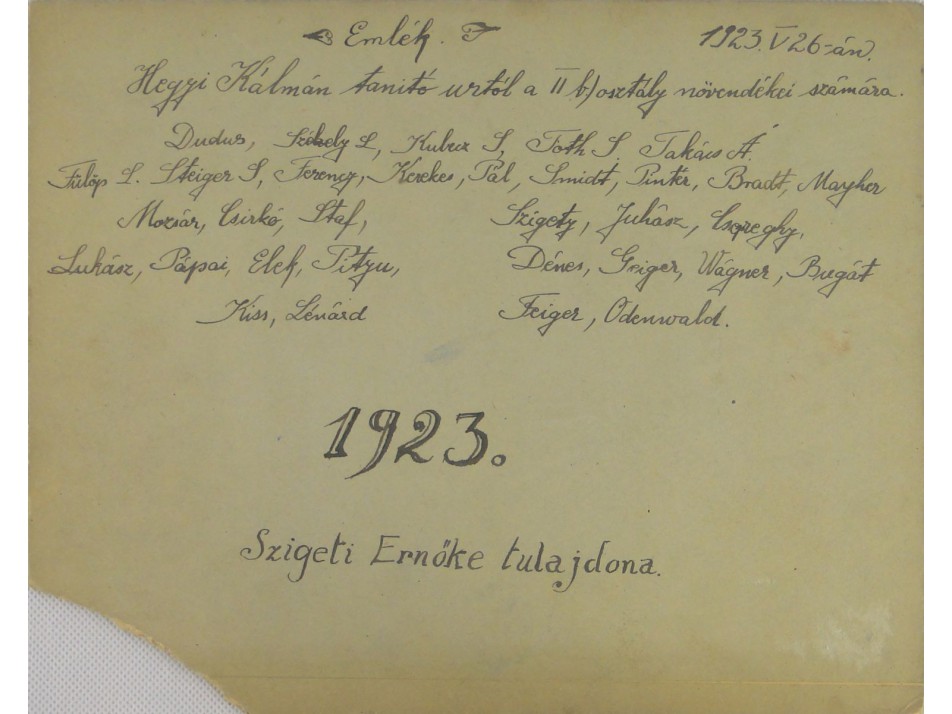 Emlék. 1923. V 26-án.
Hegyi Kálmán tanitó urtól a II b) osztály növendékei számára.
Dudus, Székely L, Kubicz S, Tóth S, Takács Á.
Fülöp L. Steiger S, Ferency, Kerekes, Pál, Smidt, Pintér, Bradt, Mayher
Mozsár, Csirkó, Staf, Szigety, Juhász, Csereghy,
Lukász, Pápai, Elek, Pityu, Dénes, Geiger, Wágner, Bugát
Kiss, Lénárd Feiger, Odenwald.
1923.
Szigeti Ernőke tulajdona.